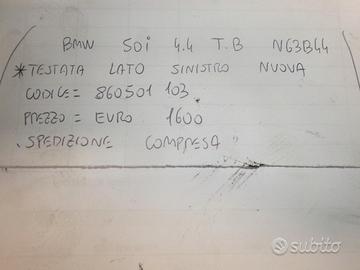 BMW 50i 4.4 T.B N63B44
* TESTATA LATO SINISTRO NUOVA
CODICE = 860501 103.
PREZZO = EURO 1600
. SPEDIZIONE COMPRESA "
subito